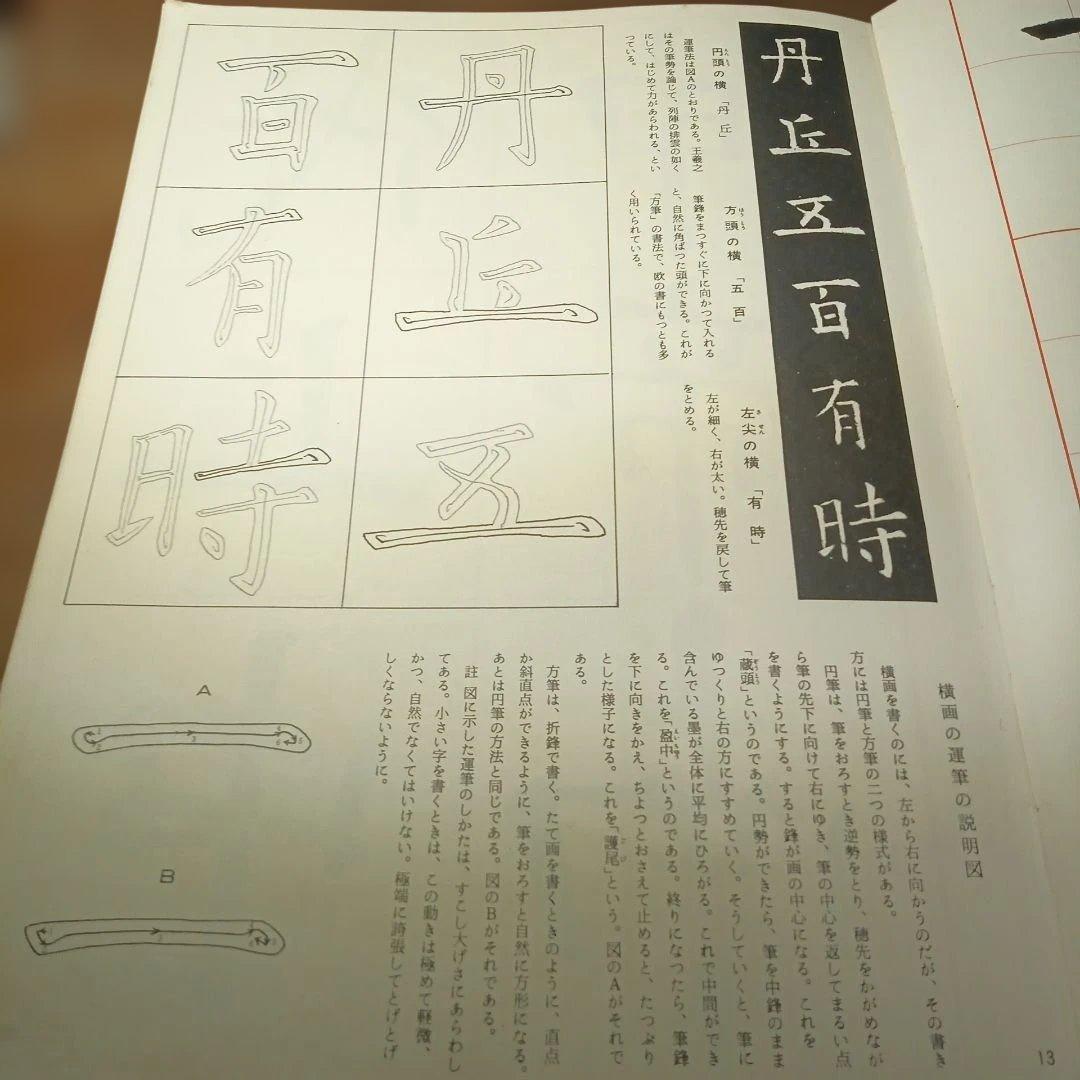 丹丘五百有時
円頭の横 「丹 丘」
運筆法は図Aのとおりである。王羲之
はその筆勢を論じて、列陣の排雲の如く
にして、はじめて力があらわれる、とい
つている。
方頭の横 「五 百」
筆鋒をまつすぐに下に向かつて入れる
と、自然に角ばつた頭ができる。これが
「方筆」の書法で、欧の書にもつとも多
く用いられている。
左尖の横 「有 時」
左が細く、右が太い。穂先を戻して筆
をとめる。
丹
丘
五
百
有
時
横画の運筆の説明図
横画を書くのには、左から右に向かうのだが、その書き
方には円筆と方筆の二つの様式がある。
円筆は、筆をおろすとき逆勢をとり、穂先をかがめなが
ら筆の先下に向けて右にゆき、筆の中心を返してまるい点
を書くようにする。すると鋒が画の中心になる。これを
「蔵頭」というのである。円勢ができたら、筆を中鋒のまま
ゆつくりと右の方にすすめていく。そうしていくと、筆に
含んでいる墨が全体に平均にひろがる。これで中間ができ
る。これを「盈中」というのである。終りになつたら、筆鋒
を下に向きをかえ、ちよつとおさえて止めると、たつぷり
とした様子になる。これを「護尾」という。図のAがそれで
ある。
方筆は、折鋒で書く。たて画を書くときのように、直点
か斜直点ができるように、筆をおろすと自然に方形になる。
あとは円筆の方法と同じである。図のBがそれである。
註 図に示した運筆のしかたは、すこし大げさにあらわし
てある。小さい字を書くときは、この動きは極めて軽微、
かつ、自然でなくてはいけない。極端に誇張してとげとげ
しくならないように。
A
B
13